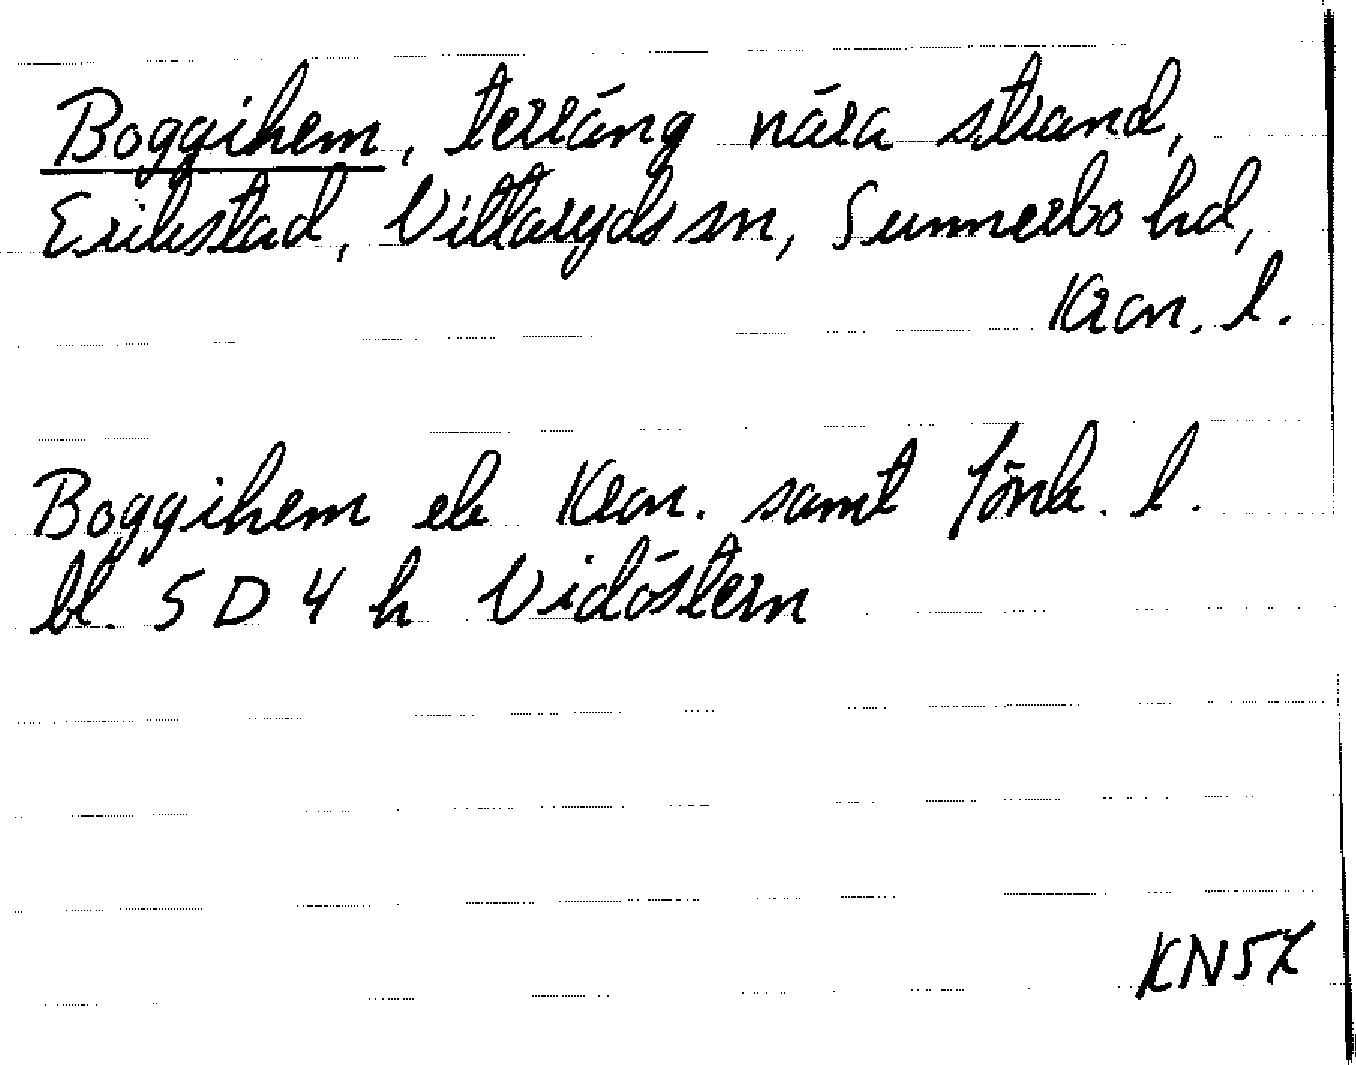 Boggihem, terräng nära strand,
Erikstad, Vittaryds sn, Sunnerbo hd,
Kron. l.
Boggihem ek Kron. samt Jönk. l.
bl. 5 D 4 h Vidöstern
KN57